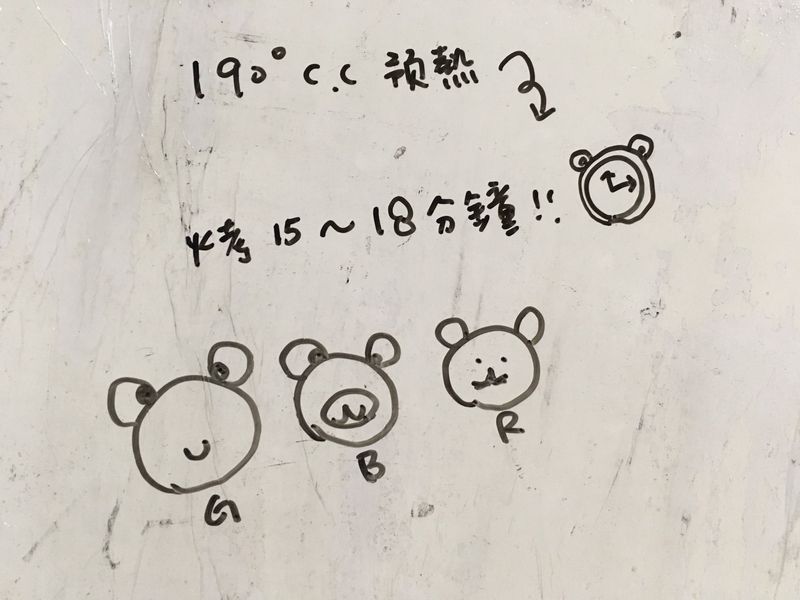 190°C.C 預熱
烤15~18分鐘!!
G
B
R